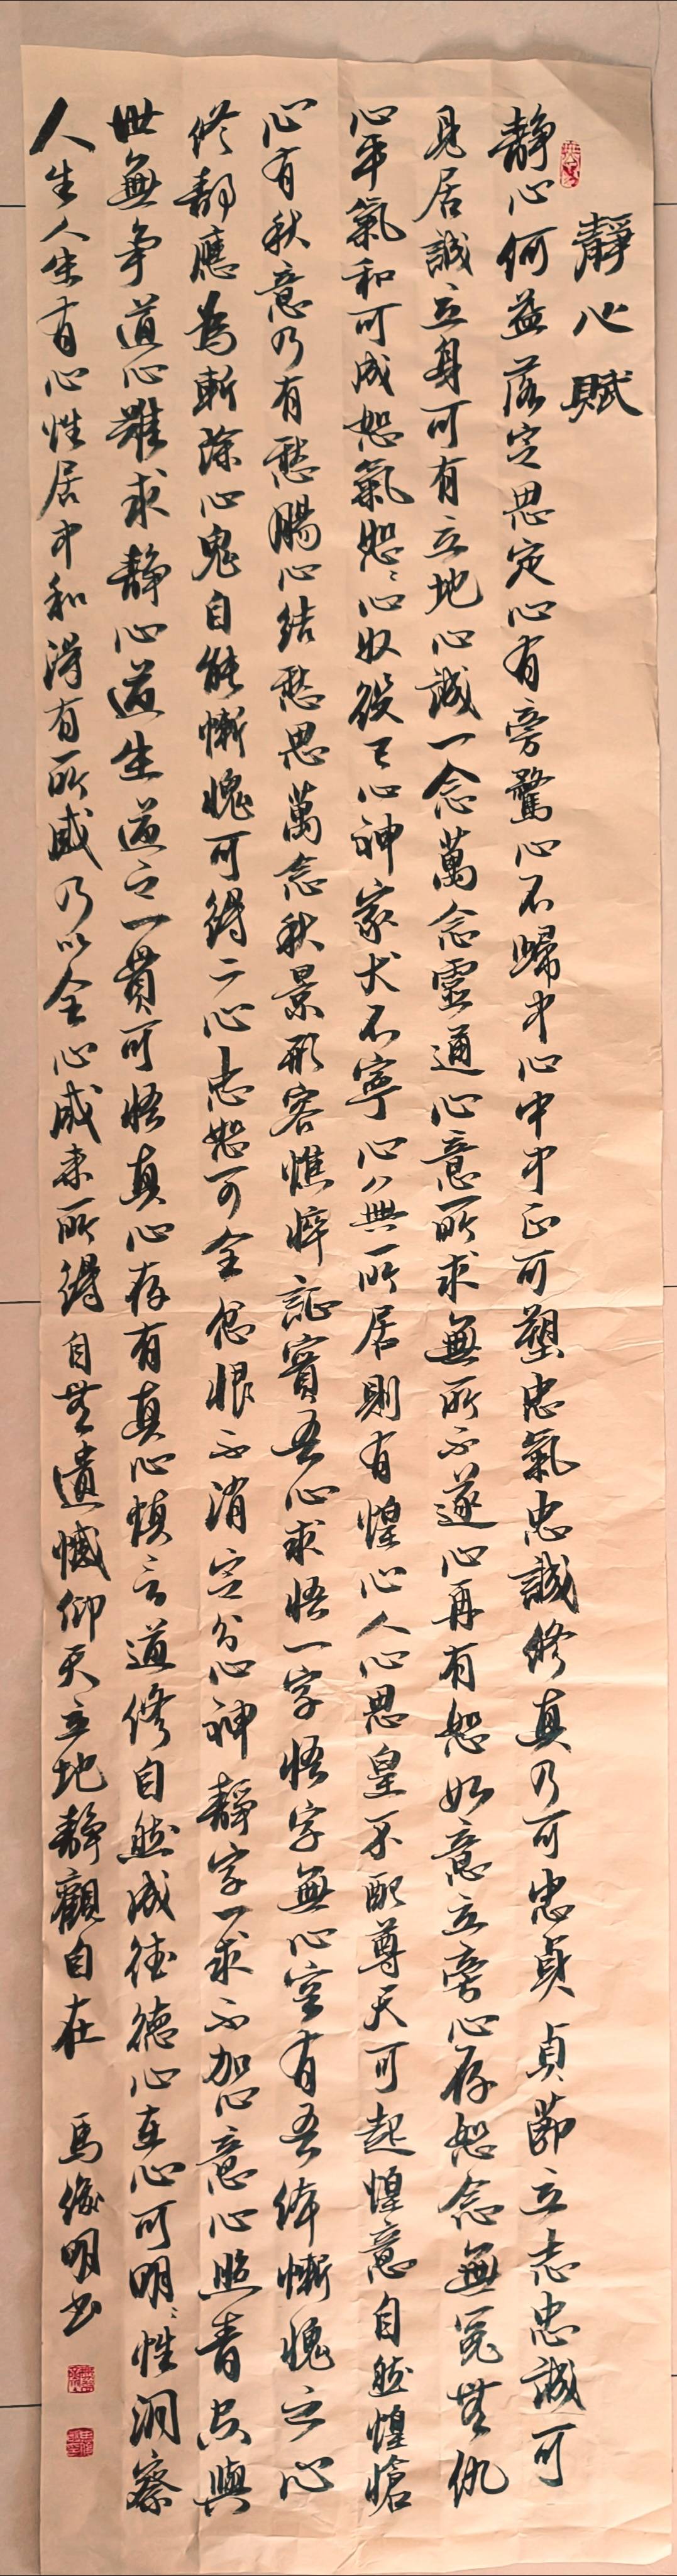 靜心賦
靜心何益落定思定心有旁驚心不歸中心中中正可塑忠氣忠誠修真乃可忠貞貞節立志忠誠可
見居誠立身可有立地心誠一念萬念靈通心意所求無所不遂心再有恕如意立旁心存恕念無冤無仇
心平氣和可成恕氣恕〻心奴役了心神家犬不寧心無所居則有惶心人心思皇不配尊天可起惶意自然惶愴
心有秋意乃有愁腸心結愁思萬念秋景形容憔悴証實吾心求悟一字悟字無心空有吾体慚愧之心
修靜應為斬除心鬼自能慚愧可得二心忠恕可全忿恨不消定分心神靜字一求不加心意心照青定與
世無爭道心難求靜心道生道之一貫可悟真心存有真心慎言道修自然成德德心在心可明〻性洞察
人生人生有心性居中和淂有所感乃以全心感来所得自無遺憾仰天立地靜觀自在 馬俊明书